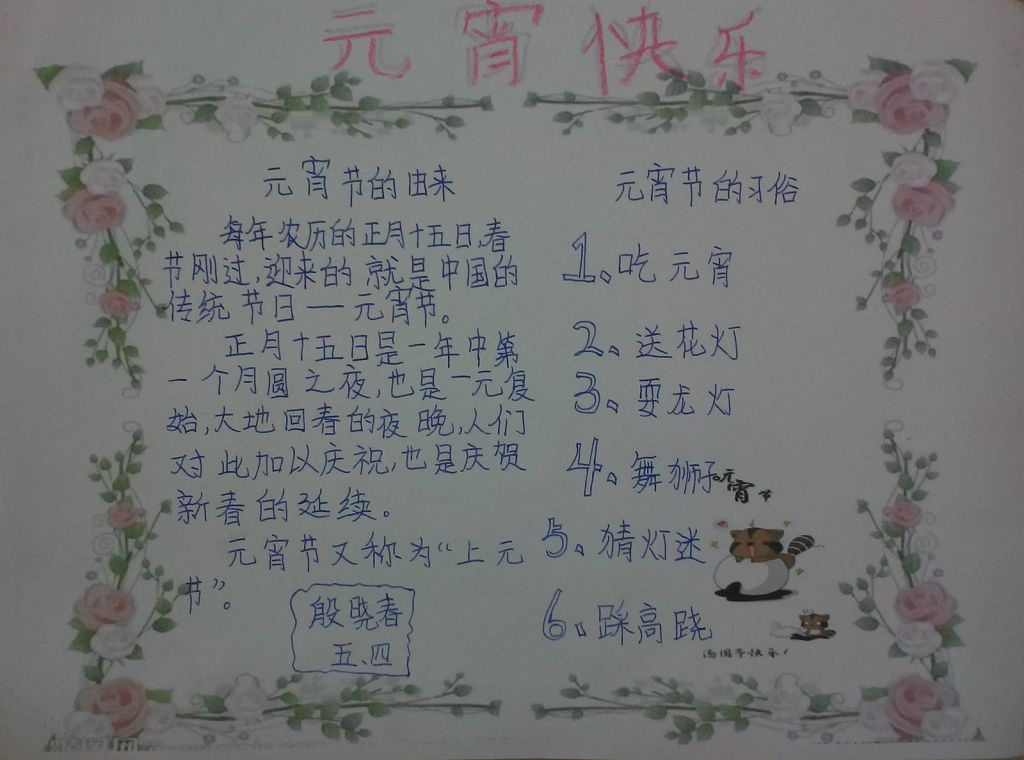 元宵快乐
元宵节的由来
每年农历的正月十五日,春
节刚过,迎来的就是中国的
传统节日——元宵节。
正月十五日是一年中第
一个月圆之夜,也是一元复
始,大地回春的夜晚,人们
对此加以庆祝,也是庆贺
新春的延续。
元宵节又称为“上元
节”。
殷晓春
五、四
元宵节的习俗
1、吃元宵
2、送花灯
3、耍龙灯
4、舞狮子
元宵节
5、猜灯迷
6、踩高跷
汤圆节快乐!